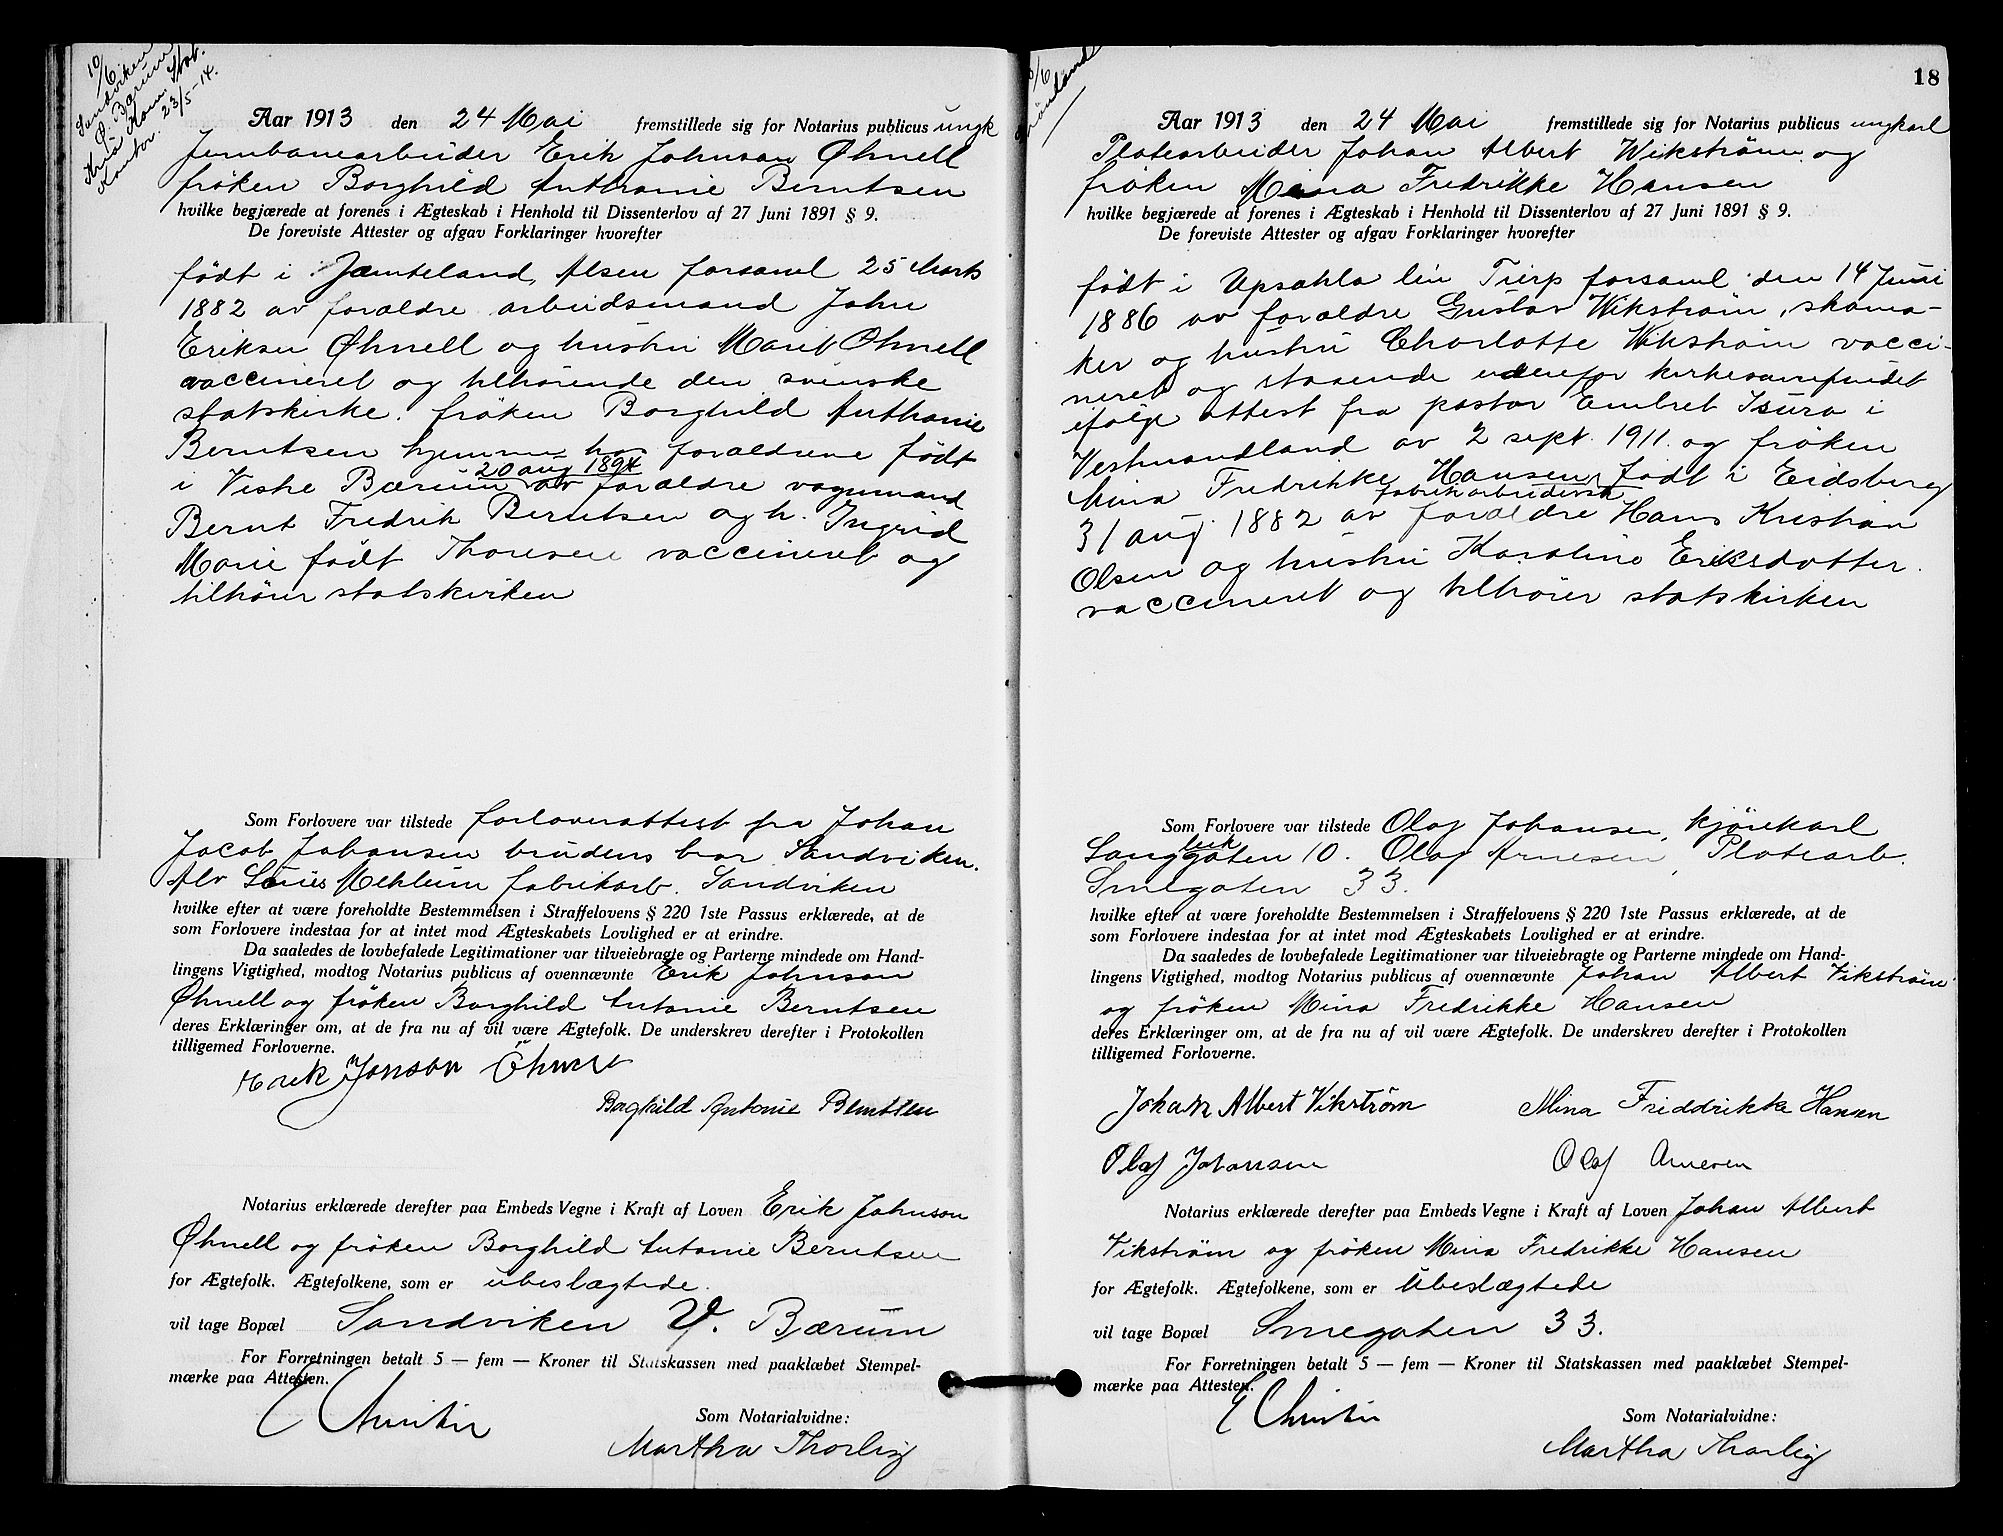 10/6
Sandviken
Ø. Bærum
Kria Kom. Stat.
Kontor. 23/5-14.
Aar 1913 den 24 Mai fremstillede sig for Notarius publicus ungk
Jernbanearbeider Erik Johnson Øhnell
frøken Borghild Anthonie Berntsen
hvilke begjærede at forenes i Ægteskab i Henhold til Dissenterlov af 27 Juni 1891 § 9.
De foreviste Attester og afgav Forklaringer hvorefter
født i Jæmteland, Alsen forsaml 25 Marts
1882 av forældre arbeidsmand John
Eriksen Øhnell og hustru Marit Øhnell
vaccineret og tilhørende den svenske
statskirke. frøken Borghild Anthonie
Berntsen hjemme hos forældrene født
20 aug 1894
i Vestre Bærum av forældre vognmand
Bernt Fredrik Berntsen og h. Ingrid
Marie født Thoresen vaccineret og
tilhører statskirken
Som Forlovere var tilstede forloverattest fra Johan
Jacob Johansen brudens bror Sandviken.
Alv Mehlum fabrikarb. Sandviken
hvilke efter at være foreholdte Bestemmelsen i Straffelovens § 220 1ste Passus erklærede, at de
som Forlovere indestaa for at intet mod Ægteskabets Lovlighed er at erindre.
Da saaledes de lovbefalede Legitimationer var tilveiebragte og Parterne mindede om Hand-
lingens Vigtighed, modtog Notarius publicus af ovennævnte Erik Johnson
Øhnell og frøken Borghild Antonie Berntsen
deres Erklæringer om, at de fra nu af vil være Ægtefolk. De underskrev derefter i Protokollen
tilligemed Forloverne.
Erik Jonson Öhnell
Borghild Antonie Berntsen
Notarius erklærede derefter paa Embeds Vegne i Kraft af Loven Erik Johnson
Øhnell og frøken Borghild Antonie Berntsen
for Ægtefolk. Ægtefolkene, som er ubeslægtede.
vil tage Bopæl Sandviken V. Bærum
For Forretningen betalt 5 — fem — Kroner til Statskassen med paaklæbet Stempel-
mærke paa Attesten.
Som Notarialvidne:
Martha Thorleif
18
Aar 1913 den 24 Mai fremstillede sig for Notarius publicus ungkarl
Platearbeider Johan Albert Wikstrøm og
frøken Mina Fredrikke Hansen
hvilke begjærede at forenes i Ægteskab i Henhold til Dissenterlov af 27 Juni 1891 § 9.
De foreviste Attester og afgav Forklaringer hvorefter
født i Upsahla len Tierp forsaml den 14 Juni
1886 av forældre Gustav Wikstrøm, skoma-
ker og hustru Charlotte Wikstrøm vacci-
neret og staaende udenfor kirkesamfundet
ifølge attest fra pastor Embret i
Vestmandland av 2 sept. 1911. og frøken
Mina Fredrikke Hansen, født i Eidsberg
fabrikarbeiderske
31 aug 1882 av forældre Hans Kristian
Olsen og hustru Karoline Eriksdotter.
vaccineret og tilhører statskirken
Som Forlovere var tilstede Olaf Johansen, kjørekarl
Langgaten 10. Olaf Arnesen, Platearb.
Smegaten 33.
hvilke efter at være foreholdte Bestemmelsen i Straffelovens § 220 1ste Passus erklærede, at de
som Forlovere indestaa for at intet mod Ægteskabets Lovlighed er at erindre.
Da saaledes de lovbefalede Legitimationer var tilveiebragte og Parterne mindede om Hand-
lingens Vigtighed, modtog Notarius publicus af ovennævnte Johan Albert Vikstrøm
og frøken Mina Fredrikke Hansen
deres Erklæringer om, at de fra nu af vil være Ægtefolk. De underskrev derefter i Protokollen
tilligemed Forloverne.
Johan Albert Vikström Mina Friddrikke Hansen
Olaf Johansen Olaf Arnesen
Notarius erklærede derefter paa Embeds Vegne i Kraft af Loven Johan Albert
Vikstrøm og frøken Mina Fredrikke Hansen
for Ægtefolk. Ægtefolkene, som er Ubeslægtede
vil tage Bopæl Smegaten 33.
For Forretningen betalt 5 — fem — Kroner til Statskassen med paaklæbet Stempel-
mærke paa Attesten.
Som Notarialvidne:
Martha Thorleif